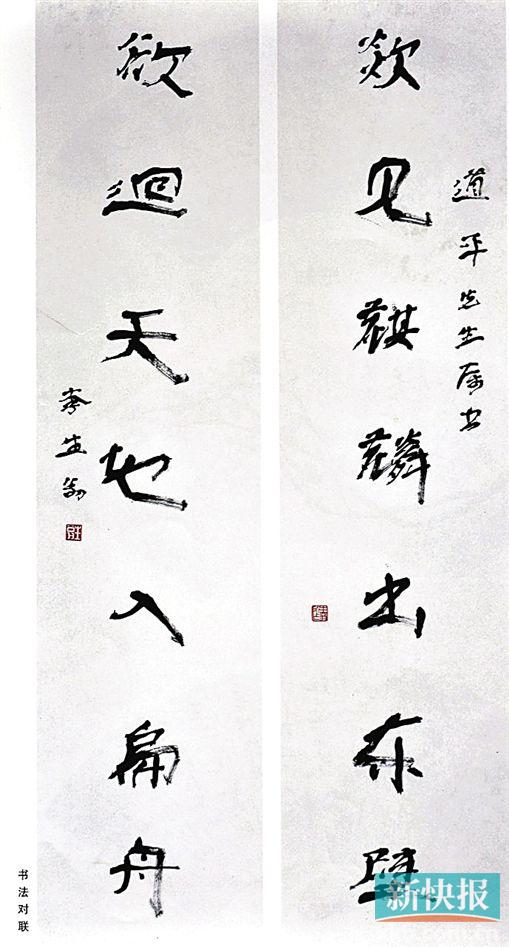 道平先生属书
欻见麒麟出东壁
欲迴天地入扁舟
李生翁
书法对联
新快报